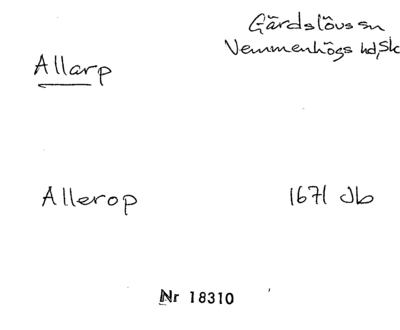 Gärdslövs sn
Vemmenhögs hd, Sk
Allarp
Allerop 1671 Jb
Nr 18310